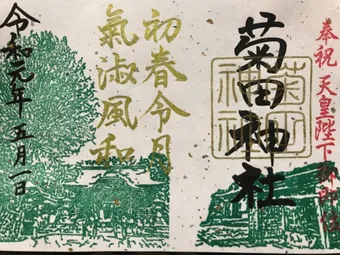 奉祝 天皇陛下御即位
菊田神社
初春令月
氣淑風和
令和元年五月一日